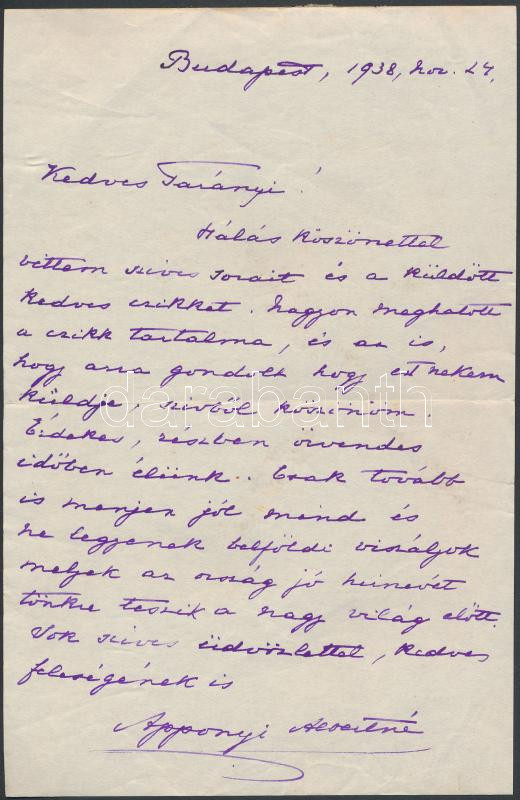 Budapest, 1938, nov. 24.
Kedves Tarányi!
Hálás köszönettel
vettem szives sorait és a küldött
kedves czikket. Nagyon meghatott
a czikk tartalma, és az is,
hogy arra gondolt hogy ezt nekem
küldje, szivből köszönöm.
Érdekes, részben örvendes
időben élünk. Csak tovább
is menjen jól mind és
ne legyenek belföldi viszályok
melyek az ország jó hirnevét
tönkre teszik a nagy világ előtt.
Sok szives üdvözlettel, kedves
feleségének is
Apponyi Albertné
darabanth